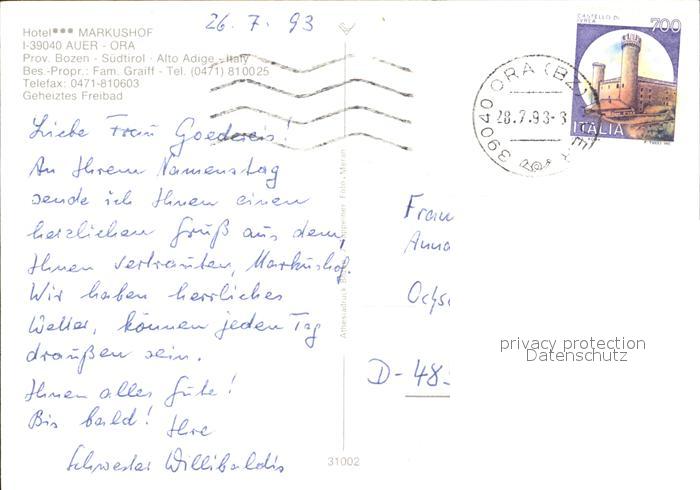 26. 7. 93
Hotel*** MARKUSHOF
I-39040 AUER - ORA
Prov. Bozen - Südtirol · Alto Adige - Italy
Bes.-Propr.: Fam. Graiff - Tel. (0471) 810025
Telefax: 0471-810603
Geheiztes Freibad
Liebe Frau Goedereis!
An Ihrem Namenstag
sende ich Ihnen einen
herzlichen Gruß aus dem,
Ihnen vertrauten, Markushof.
Wir haben herrliches
Wetter, können jeden Tag
draußen sein.
Ihnen alles Gute!
Bis bald! Ihre
Schwester Willibaldis
Athesiadruck Foto - Meran
31002
CASTELLO DI
IVREA
700
ITALIA
39040 ORA (BZ)
28.7.93-8
Frau
Anna
Ochs
D-48
privacy protection
Datenschutz